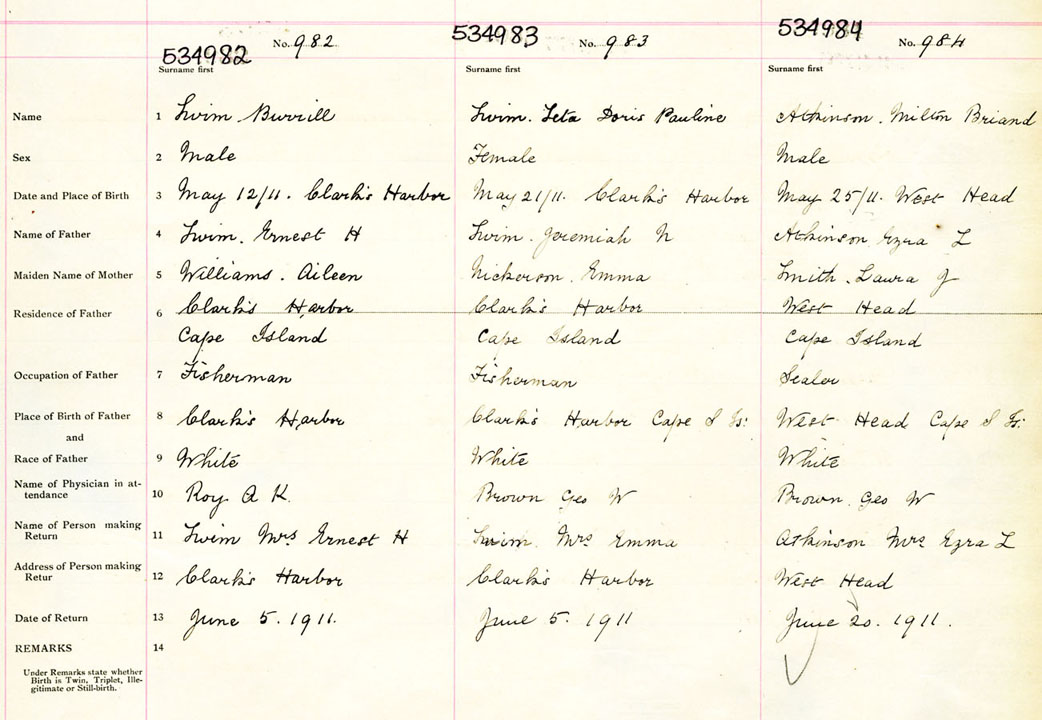 534982 No. 982 534983 No. 983 534984 No. 984
Surname first Surname first Surname first
Name 1 Swim. Burrill Swim. Leta Doris Pauline Atkinson. Milton Briand
Sex 2 Male Female Male
Date and Place of Birth 3 May 12/11. Clark's Harbor May 21/11. Clark's Harbor May 25/11. West Head
Name of Father 4 Swim. Ernest H Swim. Jeremiah N Atkinson Ezra L
Maiden Name of Mother 5 Williams. Aileen Nickerson. Emma Smith. Laura J
Residence of Father 6 Clark's Harbor Clark's Harbor West Head
Cape Island Cape Island Cape Island
Occupation of Father 7 Fisherman Fisherman Sealer
Place of Birth of Father 8 Clark's Harbor Clark's Harbor Cape S Is: West Head Cape S Is:
and
Race of Father 9 White White White
Name of Physician in at-
tendance 10 Roy A K. Brown Geo W Brown. Geo W
Name of Person making
Return 11 Swim Mrs Ernest H Swim. Mrs Emma Atkinson Mrs Ezra L
Address of Person making
Retur 12 Clark's Harbor Clark's Harbor West Head
Date of Return 13 June 5. 1911. June 5. 1911 June 20. 1911.
REMARKS 14
Under Remarks state whether
Birth is Twin, Triplet, Ille-
gitimate or Still-birth.